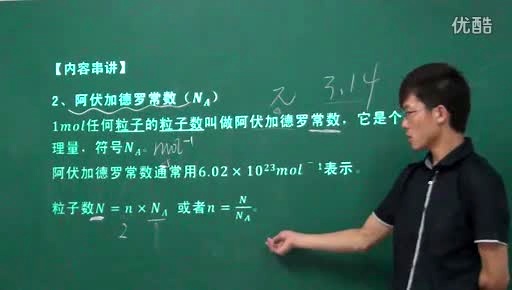 优酷
【内容串讲】
π 3.14
2、阿伏加德罗常数（N_A）
1mol任何粒子的粒子数叫做阿伏加德罗常数，它是个
理量，符号N_A。 mol⁻¹
阿伏加德罗常数通常用6.02 × 10²³mol⁻¹表示。
粒子数N = n × N_A 或者n = N/N_A。
2 1